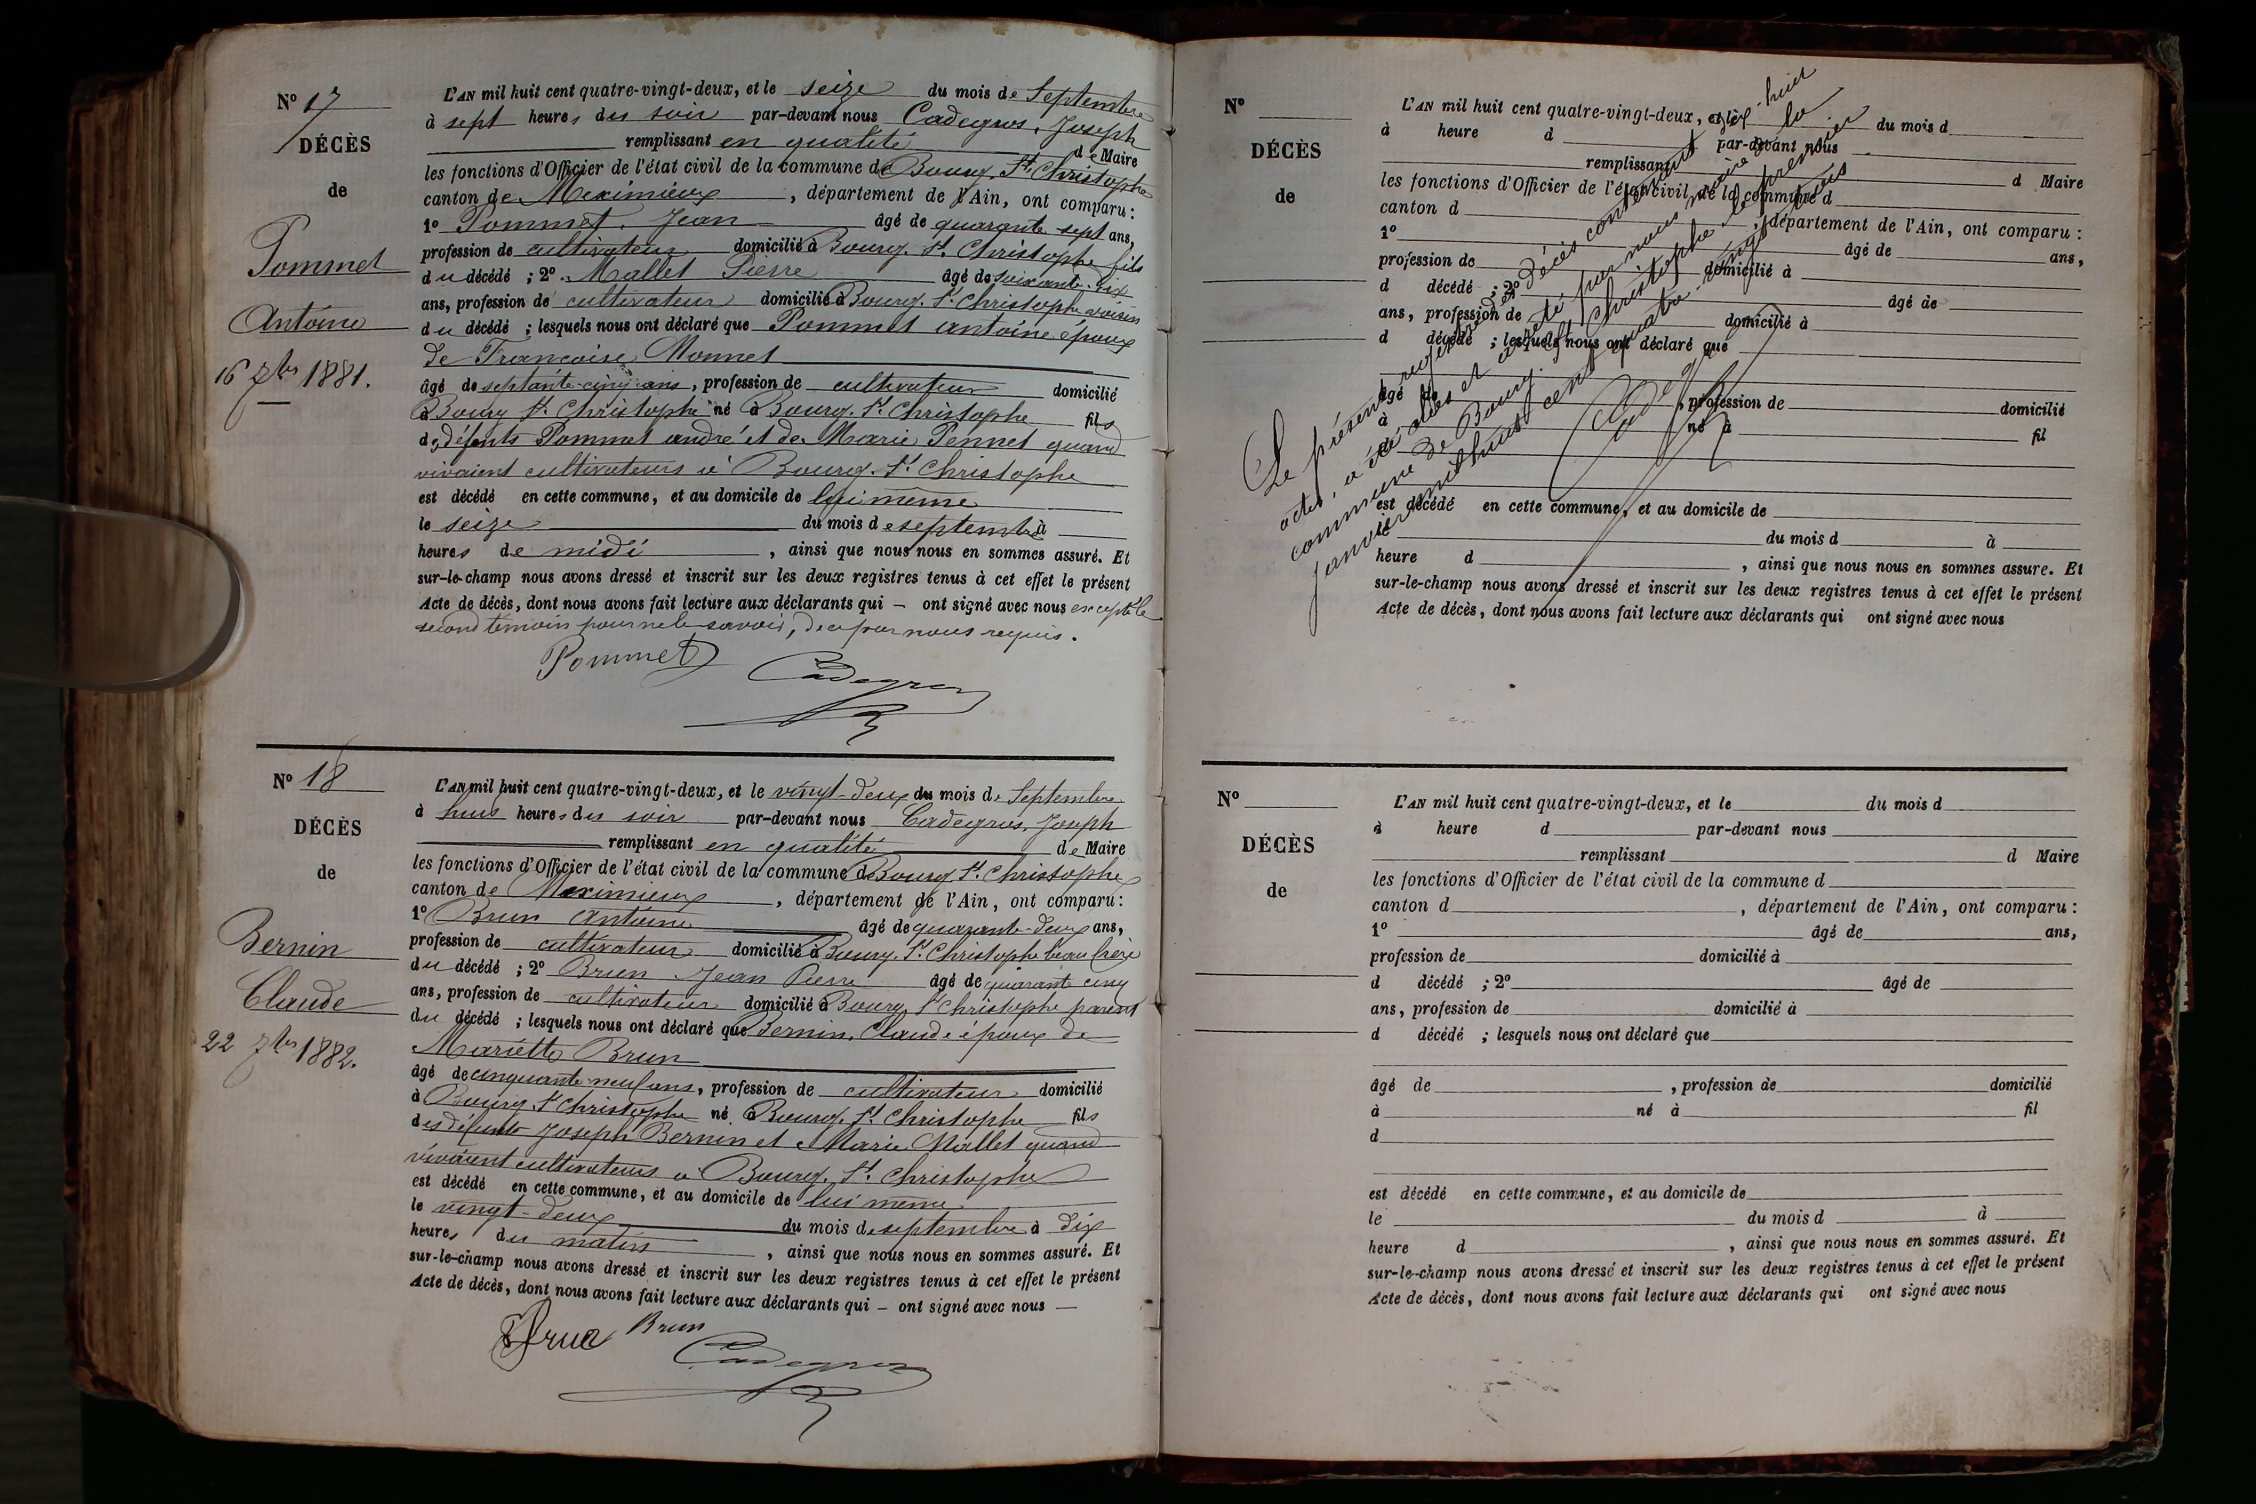 Nº 17
DÉCÈS
de
Pommet
Antoine
16 7bre 1881.
L'AN mil huit cent quatre-vingt-deux, et le seize du mois de Septembre
à sept heures du soir par-devant nous Cadegros, Joseph
remplissant en qualité de Maire
les fonctions d'Officier de l'état civil de la commune de Bourg. St. Christophe
canton de Meximieux, département de l'Ain, ont comparu :
1º Pommet. Jean âgé de quarante sept ans,
profession de cultivateur domicilié à Bourg. St. Christophe fils
du décédé ; 2º Mallet Pierre âgé de soixante-six
ans, profession de cultivateur domicilié à Bourg. St. Christophe voisin
du décédé ; lesquels nous ont déclaré que Pommet antoine époux
de Françoise Monnet
âgé de septante-cinq ans, profession de cultivateur domicilié
à Bourg St. Christophe né à Bourg. St. Christophe fils
de défunts Pommet andré et de Marie Pennet quand
vivaient cultivateurs à Bourg. St. Christophe
est décédé en cette commune, et au domicile de lui même
le seize du mois de septembre à
heures de midi, ainsi que nous nous en sommes assuré. Et
sur-le-champ nous avons dressé et inscrit sur les deux registres tenus à cet effet le présent
Acte de décès, dont nous avons fait lecture aux déclarants qui – ont signé avec nous excepté le
second témoin pour ne le savoir, de ce par nous requis.
Pommet Cadegros
Nº 18
DÉCÈS
de
Bernin
Claude
22 7bre 1882.
L'AN mil huit cent quatre-vingt-deux, et le vingt-deux du mois de Septembre
à huit heures du soir par-devant nous Cadegros, Joseph
remplissant en qualité de Maire
les fonctions d'Officier de l'état civil de la commune de Bourg St. Christophe
canton de Meximieux, département de l'Ain, ont comparu :
1º Brun Antoine âgé de quarante-deux ans,
profession de cultivateur domicilié à Bourg. St. Christophe beau frère
du décédé ; 2º Brun Jean Pierre âgé de quarant cinq
ans, profession de cultivateur domicilié à Bourg St Christophe parent
du décédé ; lesquels nous ont déclaré que Bernin, Claude époux de
Mariette Brun
âgé de cinquante neuf ans, profession de cultivateur domicilié
à Bourg St Christophe né à Bourg. St. Christophe fils
des défunts Joseph Bernin et Marie Mallet quand
vivaient cultivateurs à Bourg. St. Christophe
est décédé en cette commune, et au domicile de lui même
le vingt-deux du mois de septembre à dix
heures du matin, ainsi que nous nous en sommes assuré. Et
sur-le-champ nous avons dressé et inscrit sur les deux registres tenus à cet effet le présent
Acte de décès, dont nous avons fait lecture aux déclarants qui – ont signé avec nous —
Brun Brun
Cadegros
Nº
DÉCÈS
de
L'AN mil huit cent quatre-vingt-deux, et le du mois d
à heure d par-devant nous
remplissant d Maire
les fonctions d'Officier de l'état civil de la commune d
canton d, département de l'Ain, ont comparu :
1º âgé de ans,
profession de domicilié à
d décédé ; 2º âgé de
ans, profession de domicilié à
d décédé ; lesquels nous ont déclaré que
âgé de, profession de domicilié
à né à fil
est décédé en cette commune, et au domicile de
le du mois d à
heure d, ainsi que nous nous en sommes assuré. Et
sur-le-champ nous avons dressé et inscrit sur les deux registres tenus à cet effet le présent
Acte de décès, dont nous avons fait lecture aux déclarants qui ont signé avec nous
Le présent registre des décès contenant dix-huit
actes, a été clos et arrêté par nous maire de la
commune de Bourg. St. Christophe le premier
janvier mil huit cent quatre-vingt trois
Cadegros
Nº
DÉCÈS
de
L'AN mil huit cent quatre-vingt-deux, et le du mois d
à heure d par-devant nous
remplissant d Maire
les fonctions d'Officier de l'état civil de la commune d
canton d, département de l'Ain, ont comparu :
1º âgé de ans,
profession de domicilié à
d décédé ; 2º âgé de
ans, profession de domicilié à
d décédé ; lesquels nous ont déclaré que
âgé de, profession de domicilié
à né à fil
d
est décédé en cette commune, et au domicile de
le du mois d à
heure d, ainsi que nous nous en sommes assuré. Et
sur-le-champ nous avons dressé et inscrit sur les deux registres tenus à cet effet le présent
Acte de décès, dont nous avons fait lecture aux déclarants qui ont signé avec nous